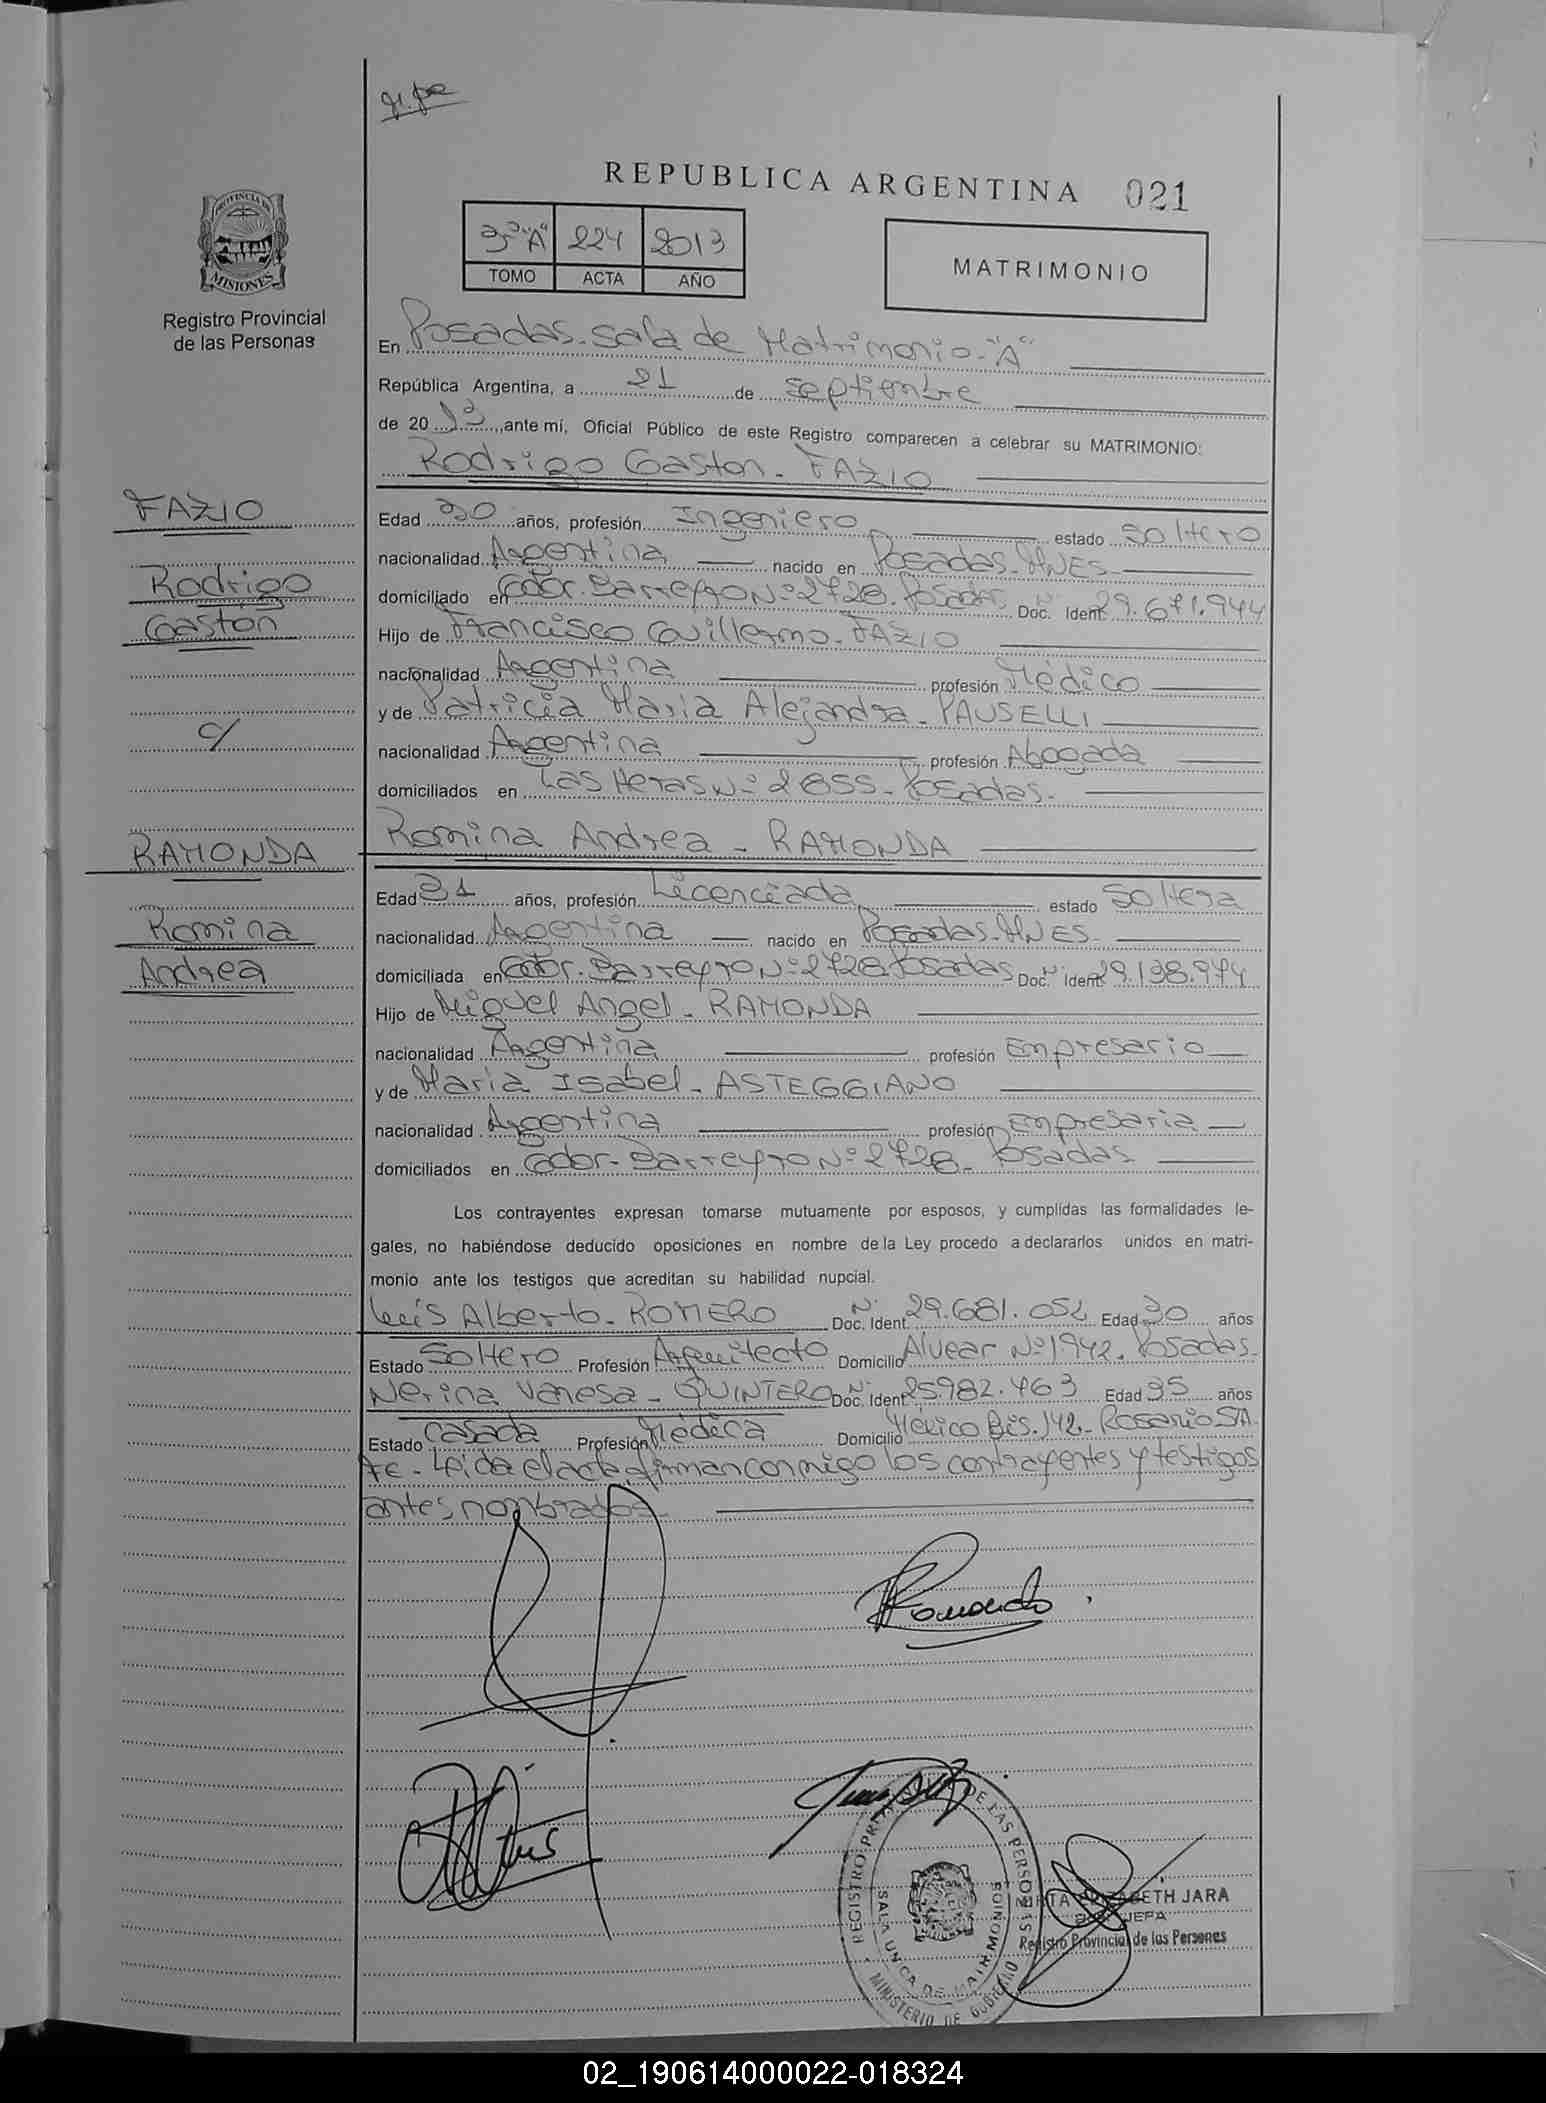 REPUBLICA ARGENTINA 021
PROVINCIA DE
MISIONES
Registro Provincial
de las Personas
3º "A" 224 2013
TOMO ACTA AÑO
MATRIMONIO
En Posadas-Sala de Matrimonio-"A"
República Argentina, a 21 de Septiembre
de 2013, ante mí, Oficial Público de este Registro comparecen a celebrar su MATRIMONIO:
Rodrigo Gaston - FAZIO
FAZIO
Edad 30 años, profesión Ingeniero estado Soltero
nacionalidad Argentina nacido en Posadas-MNES-
Rodrigo
domiciliado en Gdor. Barreyro Nº 2728. Posadas Doc. Nº Ident 29.671.944
Gaston
Hijo de Francisco Guillermo - FAZIO
nacionalidad Argentina profesión Médico
y de Patricia Maria Alejandra - PAUSELLI
c/
nacionalidad Argentina profesión Abogada
domiciliados en Las Heras Nº 2855- Posadas-
Romina Andrea - RAMONDA
RAMONDA
Edad 31 años, profesión Licenciada estado Soltera
Romina
nacionalidad Argentina nacido en Posadas-MNES-
Andrea
domiciliada en Gdor. Barreyro Nº 2728 Posadas Doc. Nº Ident 29.138.974
Hijo de Miguel Angel - RAMONDA
nacionalidad Argentina profesión Empresario
y de Maria Isabel - ASTEGGIANO
nacionalidad Argentina profesión Empresaria
domiciliados en Gdor. Barreyro Nº 2728- Posadas
Los contrayentes expresan tomarse mutuamente por esposos, y cumplidas las formalidades le-
gales, no habiéndose deducido oposiciones en nombre de la Ley procedo a declararlos unidos en matri-
monio ante los testigos que acreditan su habilidad nupcial.
Luis Alberto - ROMERO Doc. Nº Ident 29.681.052 Edad 30 años
Estado Soltero Profesión Arquitecto Domicilio Alvear Nº 1942. Posadas-
Nerina Vanesa - QUINTERO Doc. Nº Ident 25.982.463 Edad 35 años
Estado Casada Profesión Médica Domicilio México Bis. 142- Rosario STA.
FE - Leída el acta, firman conmigo los contrayentes y testigos
antes nombrados-
Ramonda
REGISTRO PROVINCIAL DE LAS PERSONAS
SALA UNICA DE MATRIMONIOS
MINISTERIO DE GOBIERNO
ELIZABETH JARA
Registro Provincial de las Personas
02_190614000022-018324